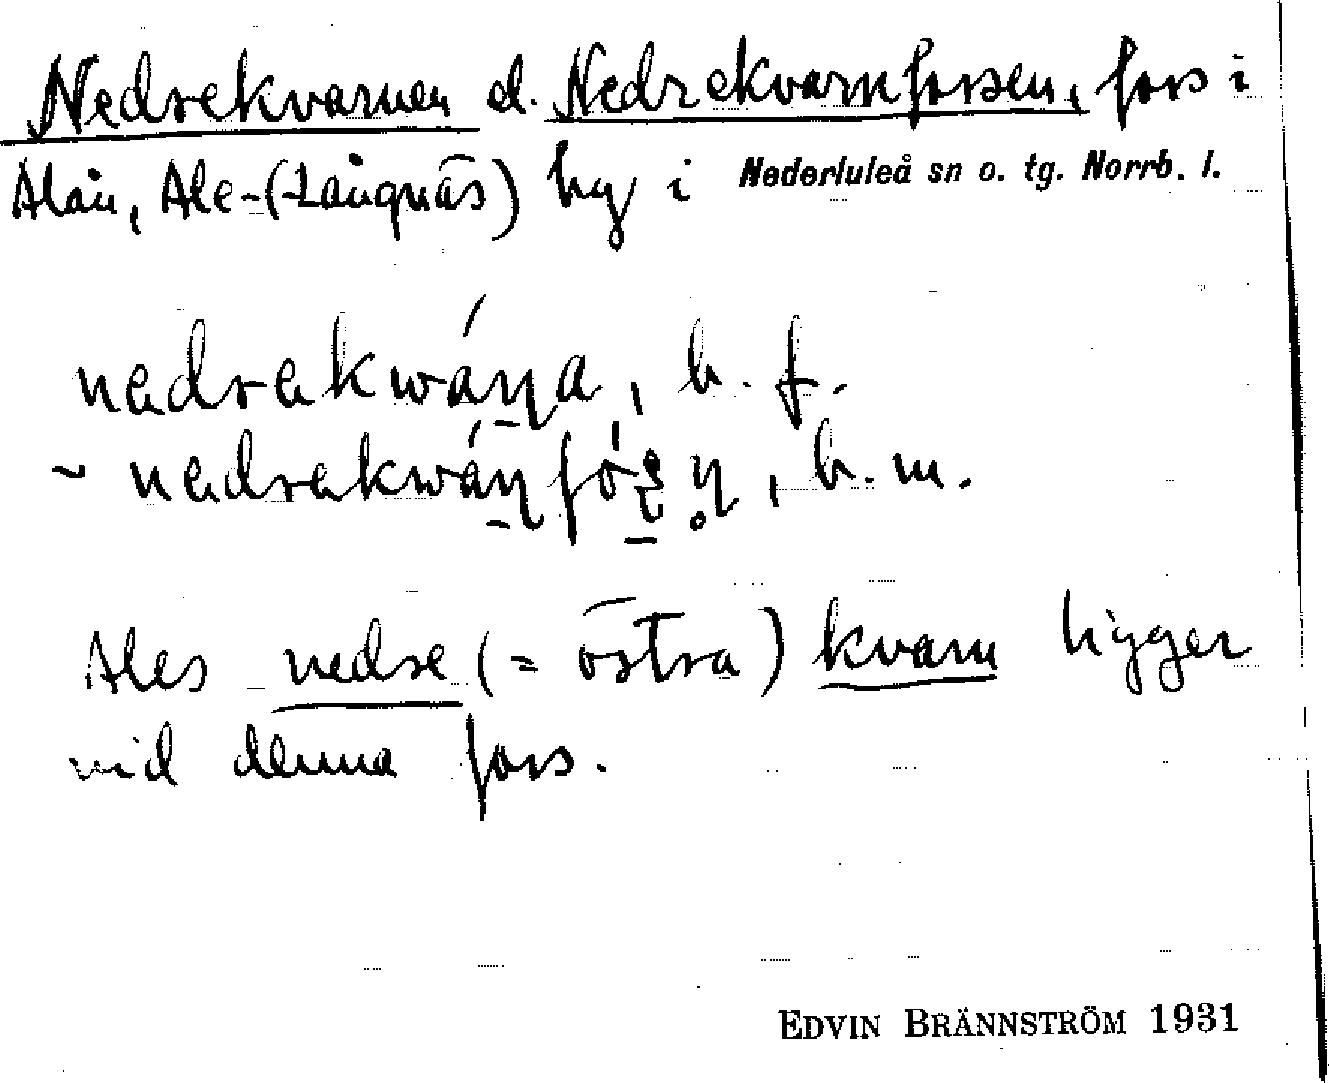 Nedrekvarnen el. Nedrekvarnforsen, fors i
Alån, Ale-(Långnäs) by i Nederluleå sn o. tg. Norrb. l.
nedrekwáɳa, b. f.
~ nedrekwáɳfóʂn̥, b. m.
Ales nedre (= östra) kvarn ligger
vid denna fors.
EDVIN BRÄNNSTRÖM 1931